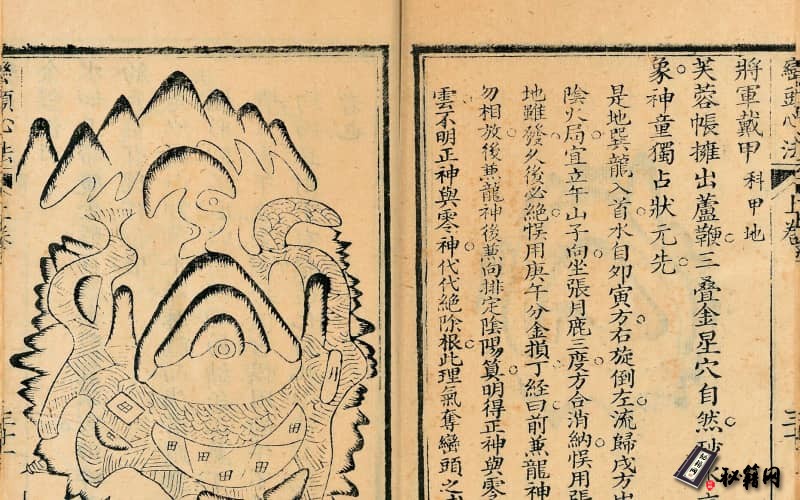 巒頭心法 上卷
將軍戴甲 科甲地
芙蓉帳擁出蘆鞭三疊金星穴自然
象神童獨占狀元先
是地巽龍入首水自夘寅方右旋倒左流歸戌方
陰火局宜立午山子向坐張月鹿三度方合消納悞用
地雖發久後必絕悞用庚午分金損丁經曰前兼龍神
勿相放後兼龍神後兼向排定陰陽算明得正神與零
雲不明正神與零神代代絕除根此理氣奪巒頭之
田
田
田
田
田
巒頭心法
秘籍网